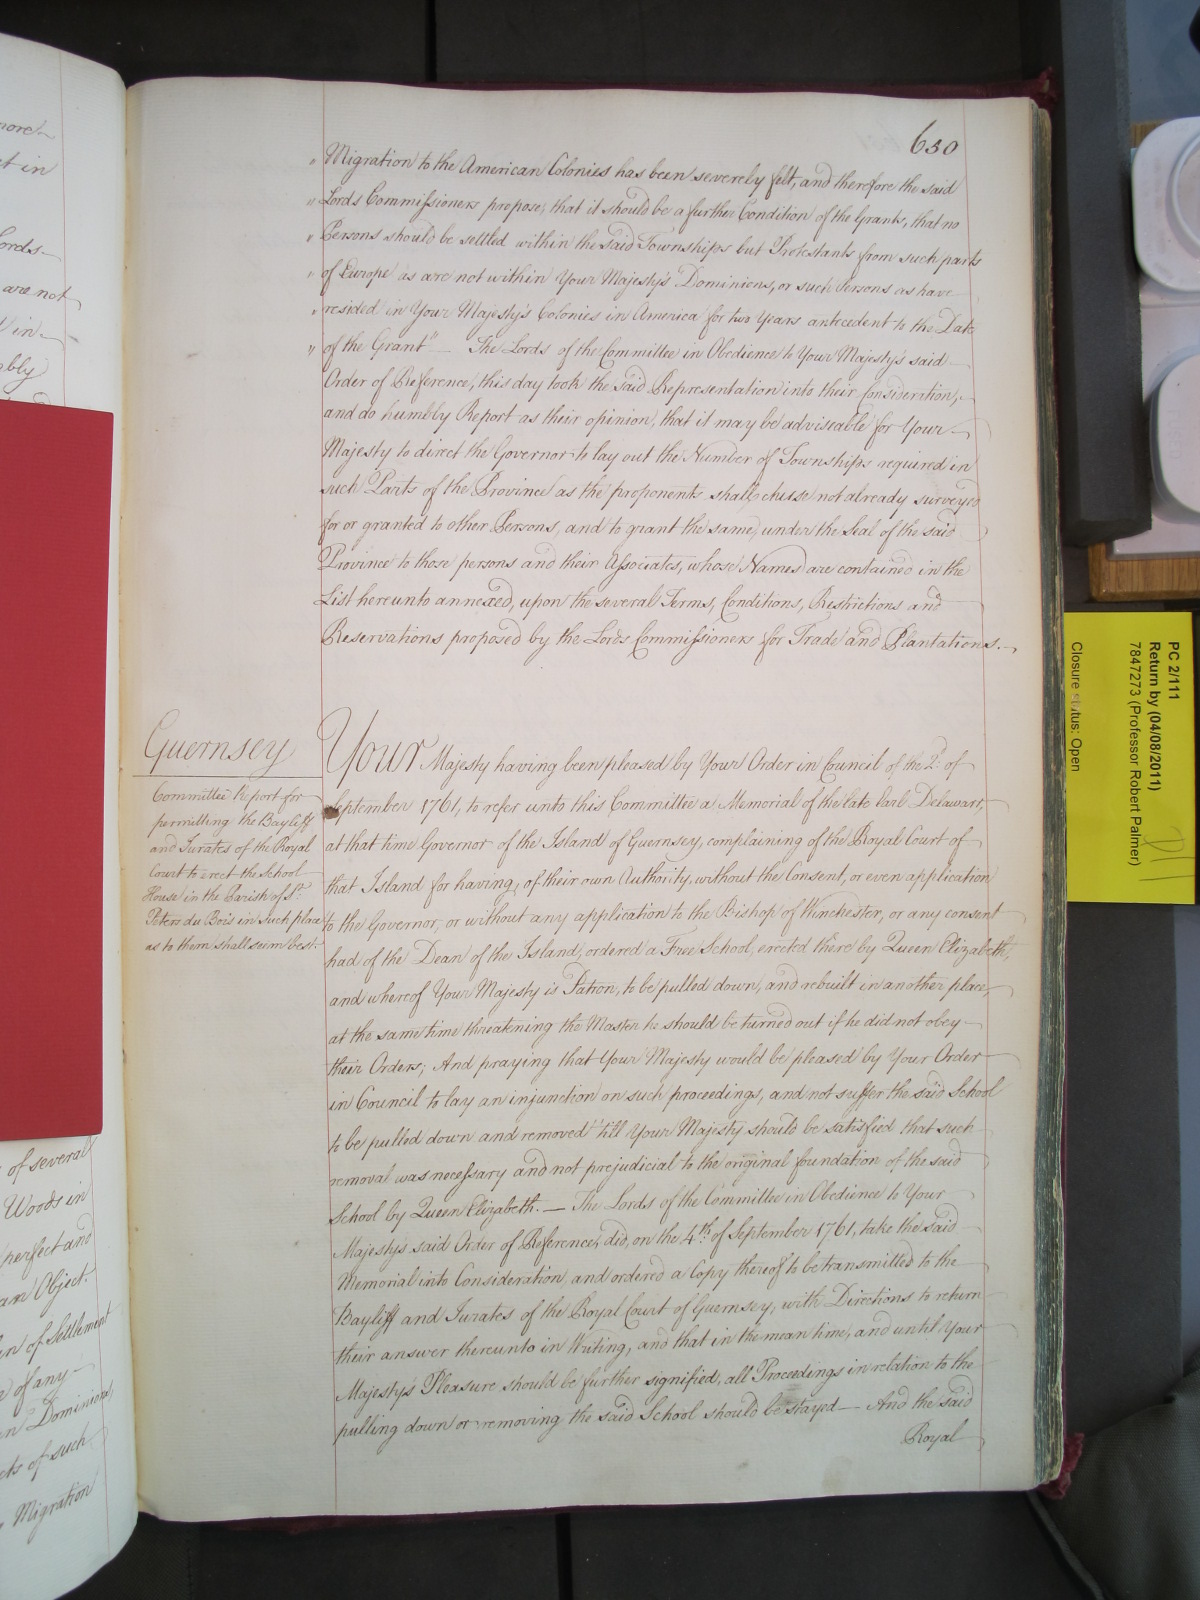 more
t in
Lords
are not
in
ably
of several
Woods in
perfect and
an Object.
n of Settlement
of any
n Dominions,
cts of such
Migration
650
" Migration to the American Colonies has been severely felt, and therefore the said
" Lords Commissioners propose, that it should be a further Condition of the Grants, that no
" Persons should be settled within the said Townships but Protestants from such parts
" of Europe as are not within Your Majesty's Dominions, or such Persons as have
" resided in Your Majesty's Colonies in America for two Years antecedent to the Date
" of the Grant" — The Lords of the Committee in Obedience to Your Majesty's said
Order of Reference, this day took the said Representation into their Consideration,
and do humbly Report as their opinion, that it may be adviseable for Your
Majesty to direct the Governor to lay out the Number of Townships required in
such Parts of the Province as the proponents shall chuse not already surveyed
for or granted to other Persons, and to grant the same, under the Seal of the said
Province to those persons and their Associates, whose Names are contained in the
List hereunto annexed, upon the several Terms, Conditions, Restrictions and
Reservations proposed by the Lords Commissioners for Trade and Plantations.
Guernsey
Committee Report for
permitting the Bayliff
and Jurates of the Royal
Court to erect the School
House in the Parish of St.
Peters du Bois in such place
as to them shall seem best.
Your Majesty having been pleased by Your Order in Council of the 2d. of
September 1761, to refer unto this Committee a Memorial of the late Earl Delawarr,
at that time Governor of the Island of Guernsey, complaining of the Royal Court of
that Island for having, of their own Authority, without the Consent, or even application
to the Governor, or without any application to the Bishop of Winchester, or any consent
had of the Dean of the Island, ordered a Free School, erected there by Queen Elizabeth,
and whereof Your Majesty is Patron, to be pulled down, and rebuilt in another place,
at the same time threatening the Master he should be turned out if he did not obey
their Orders; And praying that Your Majesty would be pleased by Your Order
in Council to lay an injunction on such proceedings, and not suffer the said School
to be pulled down and removed till Your Majesty should be satisfied that such
removal was necessary and not prejudicial to the original foundation of the said
School by Queen Elizabeth. — The Lords of the Committee in Obedience to Your
Majesty's said Order of Reference, did, on the 4th. of September 1761, take the said
Memorial into Consideration, and ordered a Copy thereof to be transmitted to the
Bayliff and Jurates of the Royal Court of Guernsey, with Directions to return
their answer thereunto in Writing, and that in the mean time, and until Your
Majesty's Pleasure should be further signified, all Proceedings in relation to the
pulling down or removing the said School should be stayed — And the said
Royal
PC 2/111
Return by (04/08/2011)
7847273 (Professor Robert Palmer)
Closure status: Open